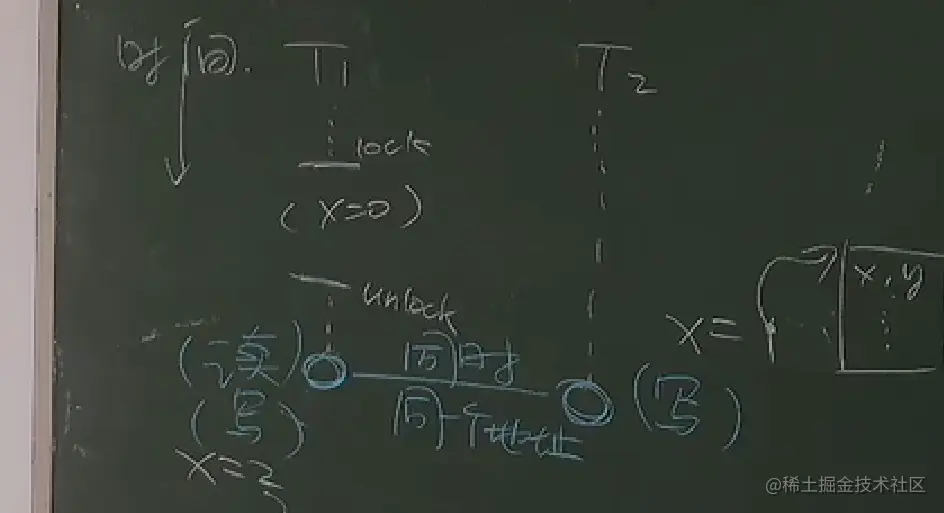 时间. T1 T2
lock
(x=0)
unlock
x, y
x=
(读) 同时
(写) 同一个地址 (写)
x=2
@稀土掘金技术社区